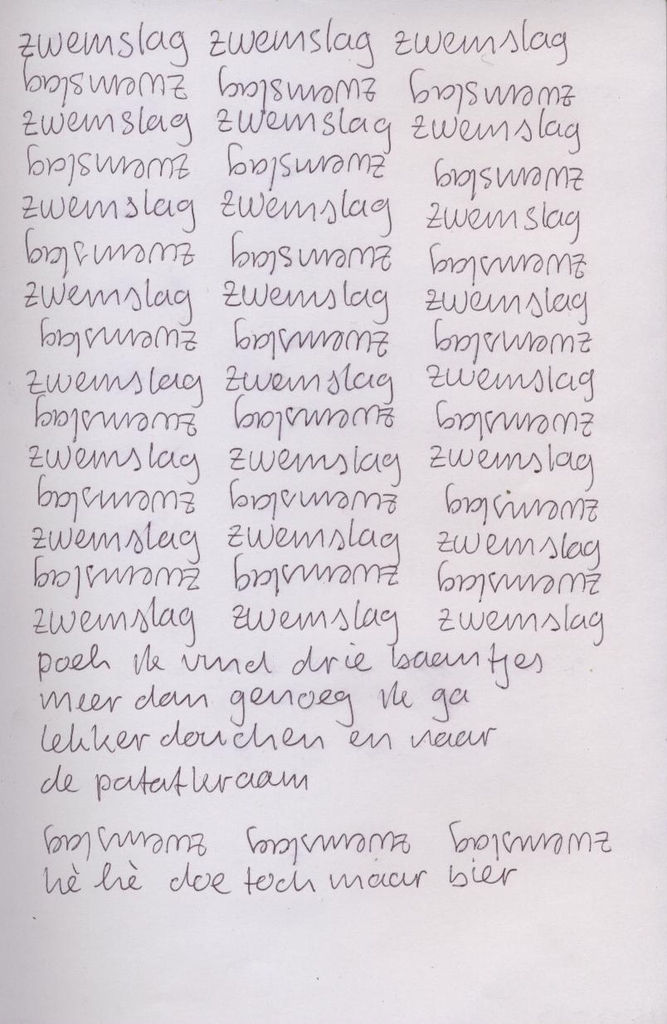 zwemslag zwemslag zwemslag
zwemslag zwemslag zwemslag
zwemslag zwemslag zwemslag
zwemslag zwemslag zwemslag
zwemslag zwemslag zwemslag
zwemslag zwemslag zwemslag
zwemslag zwemslag zwemslag
zwemslag zwemslag zwemslag
zwemslag zwemslag zwemslag
zwemslag zwemslag zwemslag
zwemslag zwemslag zwemslag
zwemslag zwemslag zwemslag
zwemslag zwemslag zwemslag
zwemslag zwemslag zwemslag
zwemslag zwemslag zwemslag
poeh ik vind drie baantjes
meer dan genoeg ik ga
lekker douchen en naar
de patatkraam
zwemslag zwemslag zwemslag
hè hè doe toch maar bier